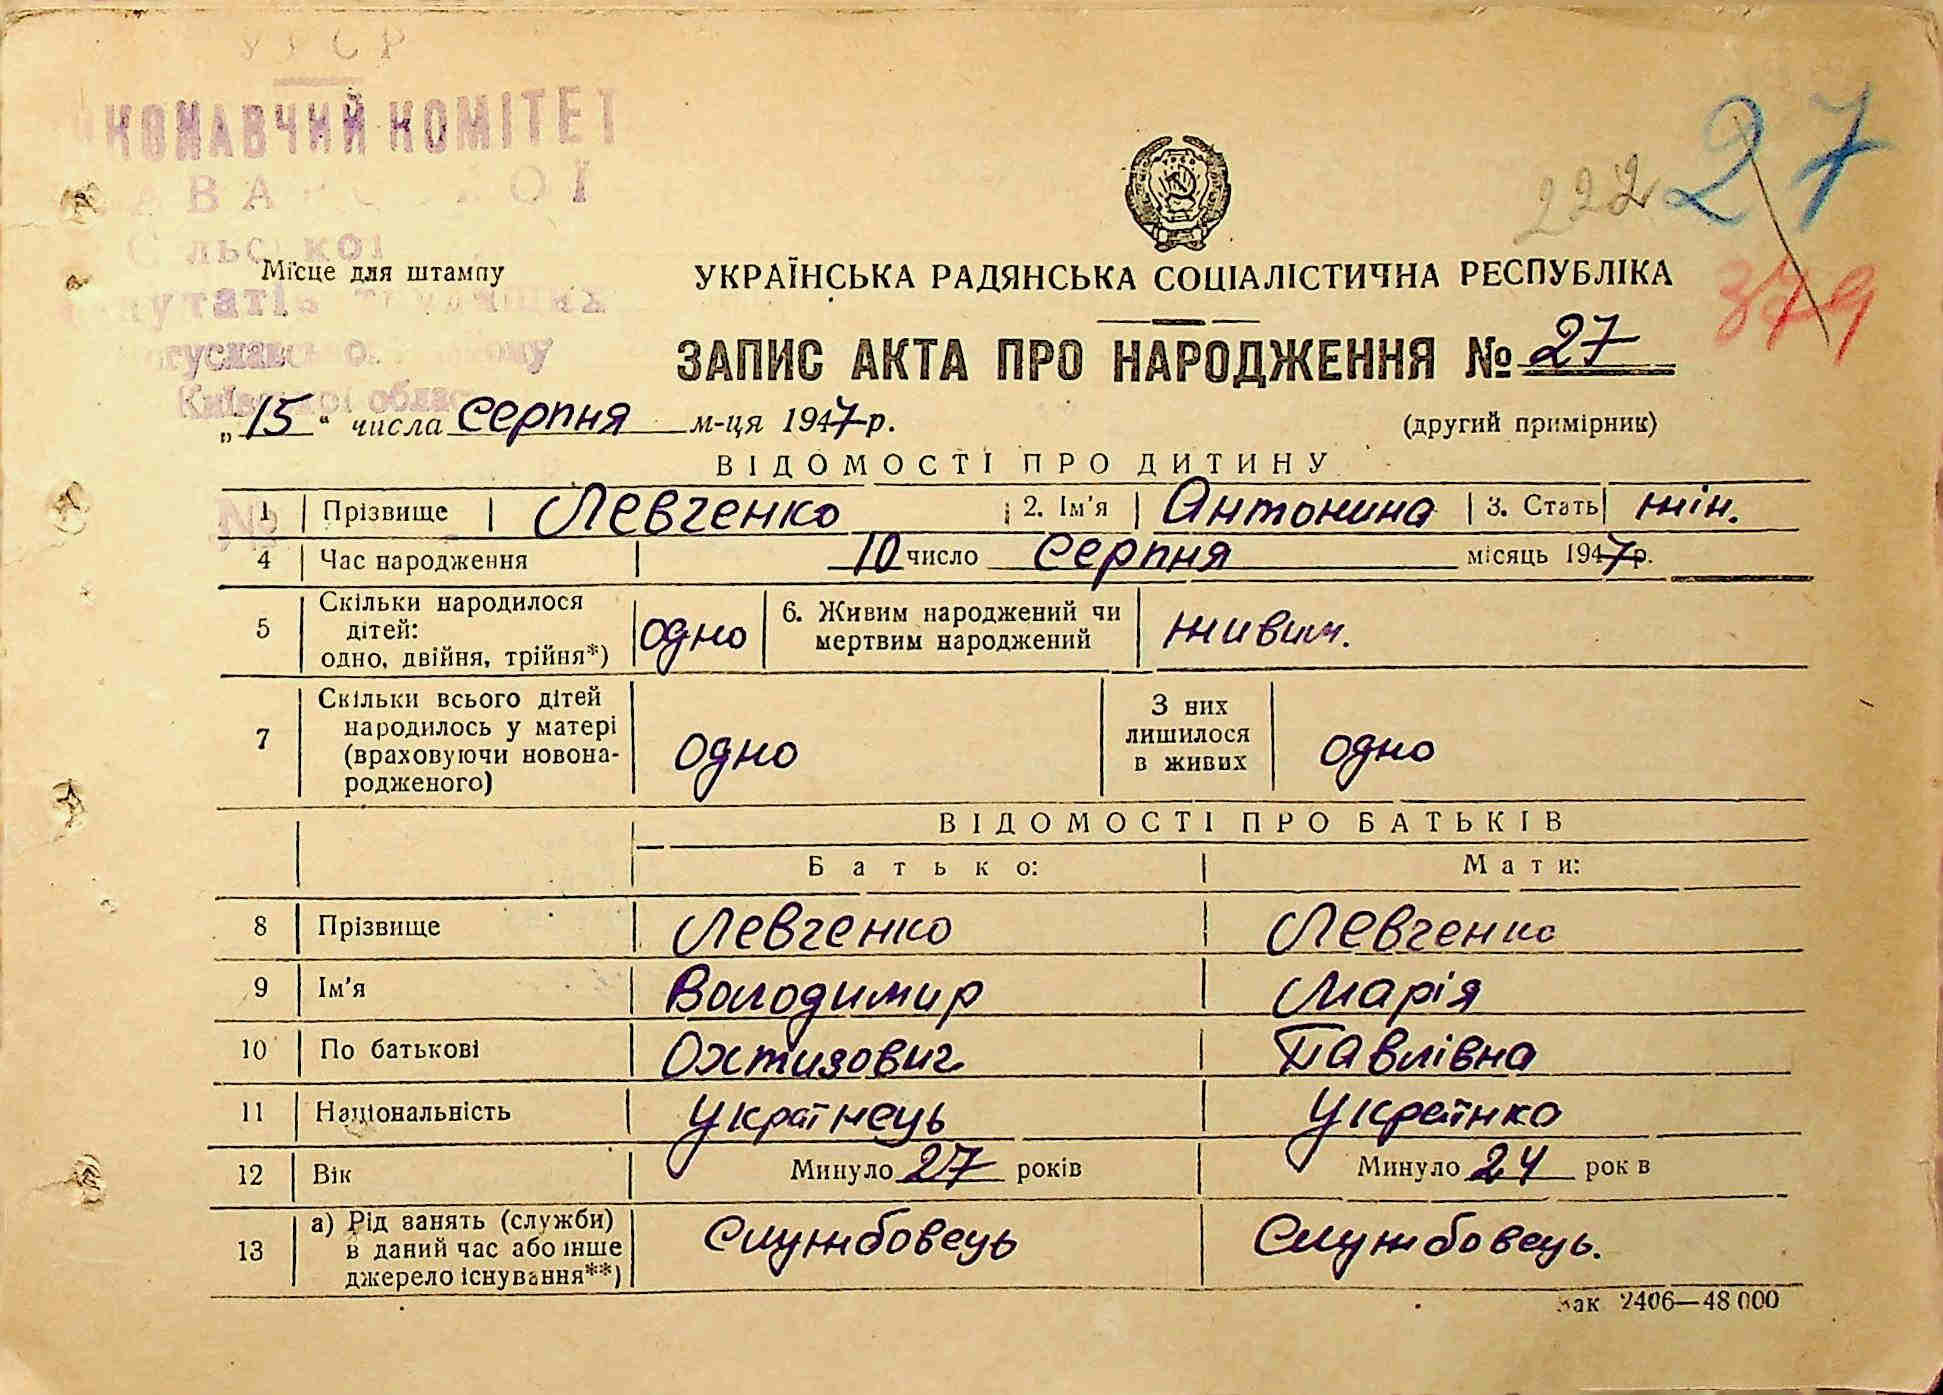 УРСР
КОНАВЧИЙ КОМІТЕТ
Сільської
депутатів трудящих
Богуславського району
Київської област
27
222
379
Місце для штампу
УКРАЇНСЬКА РАДЯНСЬКА СОЦІАЛІСТИЧНА РЕСПУБЛІКА
ЗАПИС АКТА ПРО НАРОДЖЕННЯ № 27
„15“ числа серпня м-ця 1947 р.
(другий примірник)
ВІДОМОСТІ ПРО ДИТИНУ
1 Прізвище Левченко 2. Ім'я Антонина 3. Стать жін.
4 Час народження 10 число серпня місяць 1947 р.
5 Скільки народилося дітей: одно, двійня, трійня*) одно 6. Живим народжений чи мертвим народжений живим.
7 Скільки всього дітей народилось у матері (враховуючи новонародженого) одно З них лишилося в живих одно
ВІДОМОСТІ ПРО БАТЬКІВ
Батько: Мати:
8 Прізвище Левченко Левченко
9 Ім'я Володимир Марія
10 По батькові Охтизович Павлівна
11 Національність Українець Українка
12 Вік Минуло 27 років Минуло 24 рок в
13 а) Рід занять (служби) в даний час або інше джерело існування**) Службовець Службовець.
Зак 2406—48 000